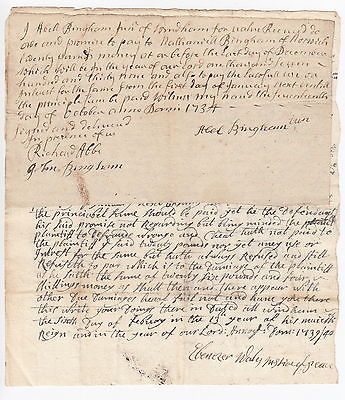 I Abell Bingham Junr of Windham for value Received do
owe and promise to pay to Nathaniell Bingham of Norwich
twenty pounds money at or before the last day of December
which will be in the year of our lord one thousand seven
hundred and thirty nine and allso to pay the lawfull use or
interest for the same from the first day of January next untill
the principle sum be paid witnes my hand the seventeenth
day of October Anno Domi 1734
signed and delivered
In presence of us
Abel Bingham iun
Richard Abbe
John Bingham
the principall sume should be paid yet the defendant
his said promis not Regarding but being minded the
plaintif to defraud wronge and cheat hath not paid to
the plaintif the said twenty pounds nor any use or
Interest for the same but hath allways Refused and still
Refuseth to pay which is to the damage of the plaintif
as he saith the sume of twenty six pounds and four
shillings money as shall then and there appear with
other due damages heirof fail not and have you there
this write with your doings therein Dated att windham
the sixth day of Febury in the 13 year of his maiesties
Reign and in the year of our Lord: Annoq: Dom: 1739/40
Ebenezer Wales Justice of peace